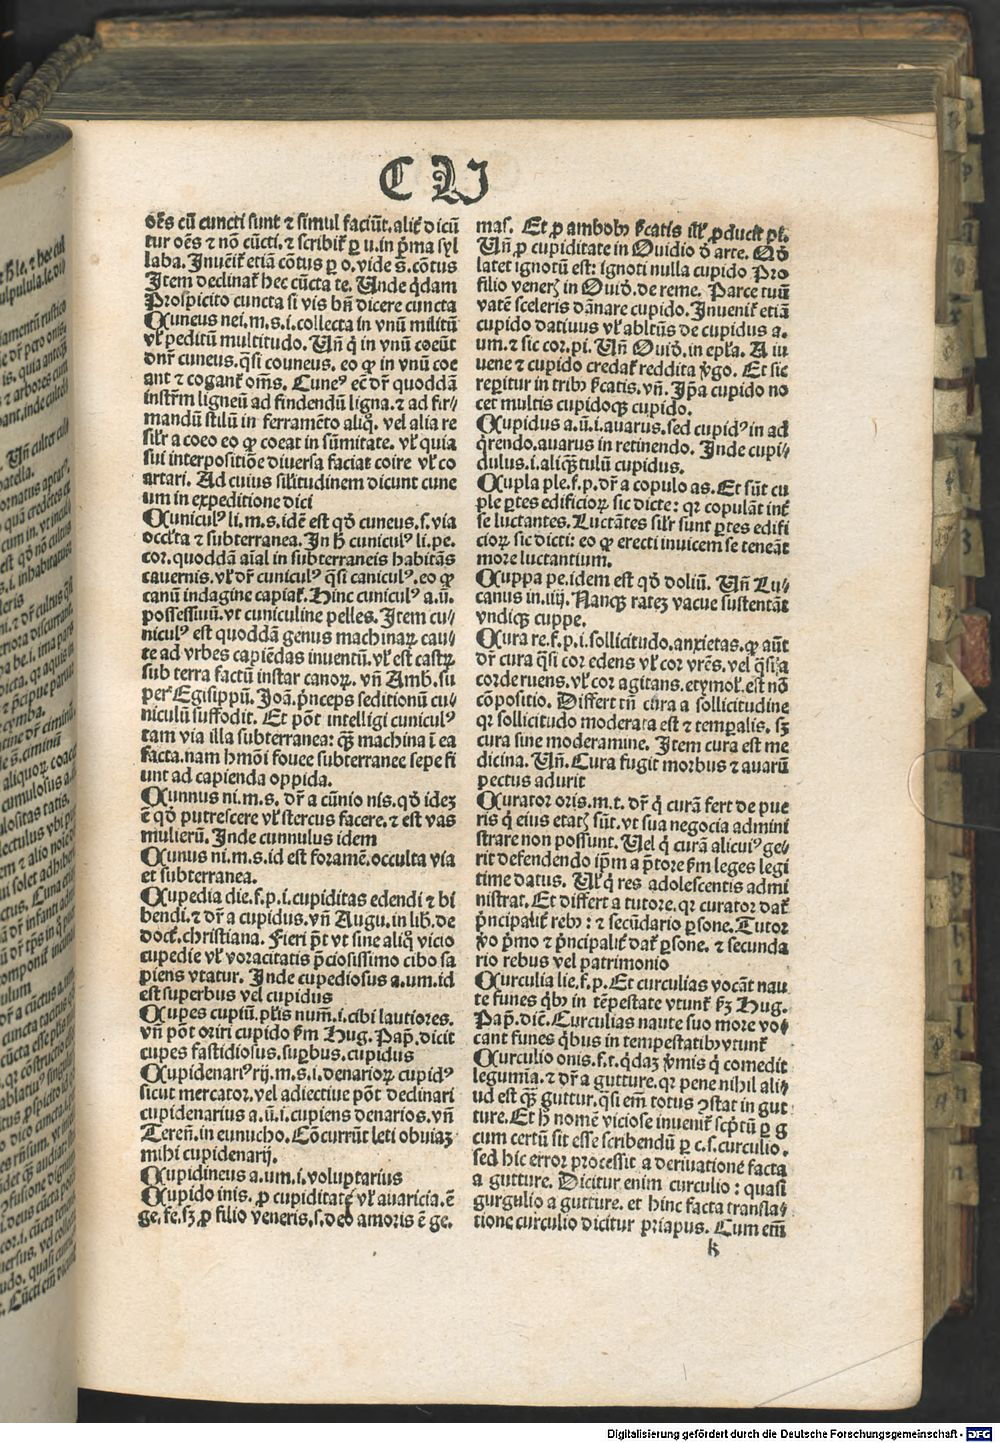 C V
oēs cū cuncti sunt ⁊ simul faciūt. aliť dicū
tur oēs ⁊ nō cūcti. ⁊ scribiť ꝑ u. in p̄ma syl
laba. Inueniť etiā cōtus ꝑ o. vide s̄. cōtus
Item declinať hec cūcta te. Unde q̄dam
Prospicito cuncta si vis bn̄ dicere cuncta
Cuneus nei. m. s. i. collecta in vnū militū
vl̓ peditū multitudo. Un̄ q̇ in vnū coeūt
dnr̄ cuneus. q̄si couneus. eo ꝙ in vnū coe
ant ⁊ coganť om̄s. Cuneꝰ ec̄ dr̄ quoddā
instrm̄ ligneū ad findendū ligna. ⁊ ad fir⸗
mandū stilū in ferramēto aliq̊. vel alia re
sil̓r a coeo eo ꝙ coeat in sūmitate. vl̓ quia
sui interpositiōe diuersa faciat coire vl̓ co
artari. Ad cuius sil̓itudinem dicunt cune
um in expeditione dici
Cuniculꝰ li. m. s. idē est qd̓ cuneus. s. via
occl̓ta ⁊ subterranea. In h̄ cuniculꝰ li. pe.
cor. quoddā aīal in subterraneis habitās
cauernis. vl̓ dr̄ cuniculꝰ q̄si caniculꝰ. eo ꝙ
canū indagine capiať. Hinc cuniculꝰ a. ū.
possessiuū. vt cuniculine pelles. Item cu⸗
niculꝰ est quoddā genus machinaꝝ cau⸗
te ad vrbes capiēdas inuentū. vl̓ est castrꝝ
sub terra factū instar canoꝝ. vn̄ Amb. su
per Egisippū. Joā. p̄nceps seditionū cu⸗
niculū suffodit. Et pōt intelligi cuniculꝰ
tam via illa subterranea: q̄ꝫ machina ī ea
facta. nam hmōi fouee subterranee sepe fi
unt ad capienda oppida.
Cunnus ni. m. s. dr̄ a cūnio nis. qd̓ ideꝫ
ē qd̓ putrescere vl̓ stercus facere. ⁊ est vas
mulierū. Inde cunnulus idem
Cunus ni. m. s. id est foramē. occulta via
et subterranea.
Cupedia die. f. p. i. cupiditas edendi ⁊ bi
bendi. ⁊ dr̄ a cupidus. vn̄ Augu. in lib̓. de
doct̄. christiana. Fieri p̄t vt sine aliq̊ vicio
cupedie vl̓ voracitatis p̄ciosissimo cibo sa
piens vtatur. Inde cupediosus a. um. id
est superbus vel cupidus
Cupes cupiū. pl̓is num̄. i. cibi lautiores.
vn̄ pōt oriri cupido ẜm Hug. Pap̄. dicit
cupes fastidiosus. suꝑbus. cupidus
Cupidenariꝰ rij. m. s. i. denarioꝝ cupidꝰ
sicut mercator. vel adiectiue pōt declinari
cupidenarius a. ū. i. cupiens denarios. vn̄
Teren̄. in eunucho. Cōcurrūt leti obuiaꝫ
mihi cupidenarij.
Cupidineus a. um. i. voluptarius
Cupido inis. ꝓ cupiditate vl̓ auaricia. ē
ge. fe. sꝫ ꝓ filio veneris. s. deo amoris ē ge.
mas. Et ꝓ ambobꝫ ẜcatis
Un̄ ꝓ cupiditate in Ouidio d̓ arte. Qd̓
latet ignotū est: ignoti nulla cupido Pro
filio venerꝭ in Ouid̓. de reme. Parce tuū
vatē sceleris dānare cupido. Inueniť etiā
cupido datiuus vl̓ abltūs de cupidus a.
um. ⁊ sic cor. pi. Un̄ Ouid̓. in epl̓a. A iu
uene ⁊ cupido credať reddita v̓go. Et sic
reꝑitur in tribꝫ ẜcatis. vn̄. Ip̄a cupido no
cet multis cupidoqꝫ cupido.
Cupidus a. ū. i. auarus. sed cupidꝰ in ad
q̄rendo. auarus in retinendo. Inde cupi⸗
dulus. i. aliq̄ꝫtulū cupidus.
Cupla ple. f. p. dr̄ a copulo as. Et sūt cu
ple ꝑtes edificioꝝ sic dicte: qꝛ copulāt int̓
se luctantes. Luctātes sil̓r sunt ꝑtes edifi
cioꝝ sic dicti: eo ꝙ erecti inuicem se teneāt
more luctantium.
Cuppa pe. idem est qd̓ doliū. Un̄ Lu⸗
canus in. iiij. Nanqꝫ rateꝫ vacue sustentāt
vndiqꝫ cuppe.
Cura re. f. p. i. sollicitudo. anxietas. ꝙ aūt
dr̄ cura q̄si cor edens vl̓ cor vrēs. vel q̄si a
corde ruens. vl̓ cor agitans. etymol̓. est nō
cōpositio. Differt tn̄ cura a sollicitudine
qꝛ sollicitudo moderata est ⁊ temꝑalis. sꝫ
cura sine moderamine. Item cura est me
dicina. Un̄. Cura fugit morbus ⁊ auarū
pectus adurit
Curator oris. m. t. dr̄ q̇ curā fert de pue
ris q̇ eius etatꝭ sūt. vt sua negocia admini
strare non possunt. Uel q̇ curā alicuiꝰ ge⸗
rit defendendo ip̄m a p̄tore ẜm leges legi
time datus. Ul̓ q̇ res adolescentis admi
nistrat. Et differt a tutore. qꝛ curator dať
p̄ncipaliť rebꝫ: ⁊ secūdario ꝑsone. Tutor
v̓o p̄mo ⁊ p̄ncipaliť dať ꝑsone. ⁊ secunda
rio rebus vel patrimonio
Curculia lie. f. p. Et curculias vocāt nau
te funes q̇bꝫ in tēpestate vtunť ẜꝫ Hug.
Pap̄. dic̄. Curculias naute suo more vo⸗
cant funes q̇bus in tempestatibꝫ vtunť
Curculio onis. f. t. q̇daꝫ v̓mis q̇ comedit
legumīa. ⁊ dr̄ a gutture. qꝛ pene nihil ali⸗
ud est q̄ꝫ guttur. qsi em̄ totus ꝯstat in gut
ture. Et h̓ nomē viciose inueniť sc̄ptū ꝑ g
cum certū sit esse scribendū ꝑ c. s. curculio.
sed hic error processit a deriuatione facta
a gutture. Dicitur enim curculio: quasi
gurgulio a gutture. et hinc facta transla⸗
tione curculio dicitur priapus. Cum em̄
k
Digitalisierung gefördert durch die Deutsche Forschungsgemeinschaft - DFG